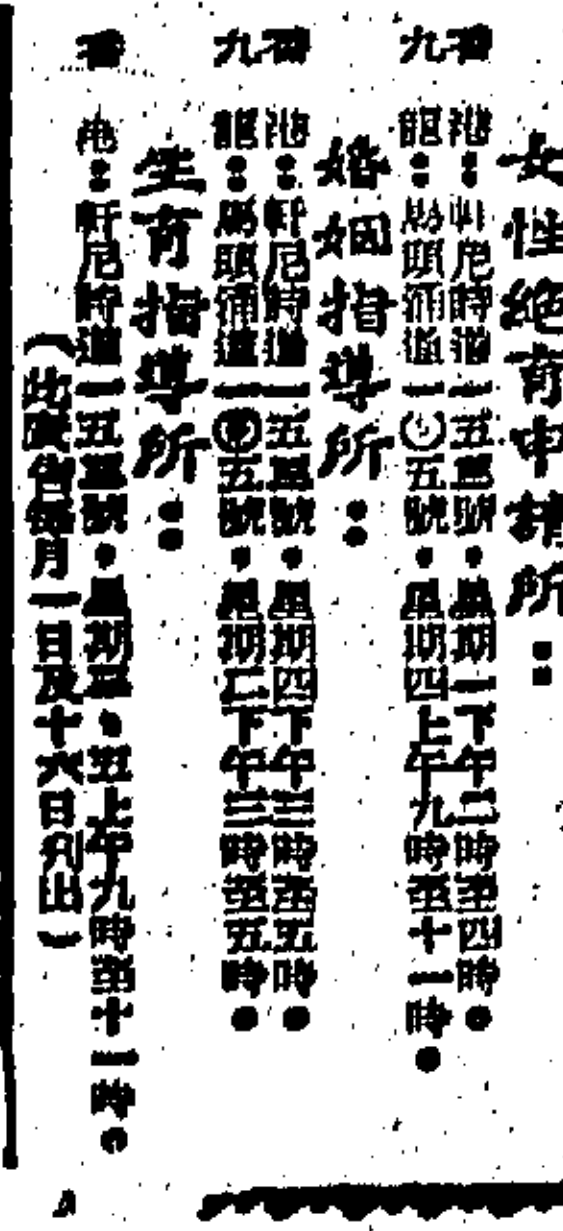 女性絕育申請所：
香港：軒尼時道一五五號，星期一下午二時至四時。
九龍：馬頭涌道一〇五號，星期四上午九時至十一時。
婚姻指導所：
香港：軒尼時道一五五號，星期四下午三時至五時。
九龍：馬頭涌道一〇五號，星期二下午三時至五時。
生育指導所：
香港：軒尼時道一五五號，星期、五上午九時至十一時。
（此廣告每月一日及十六日刋出）